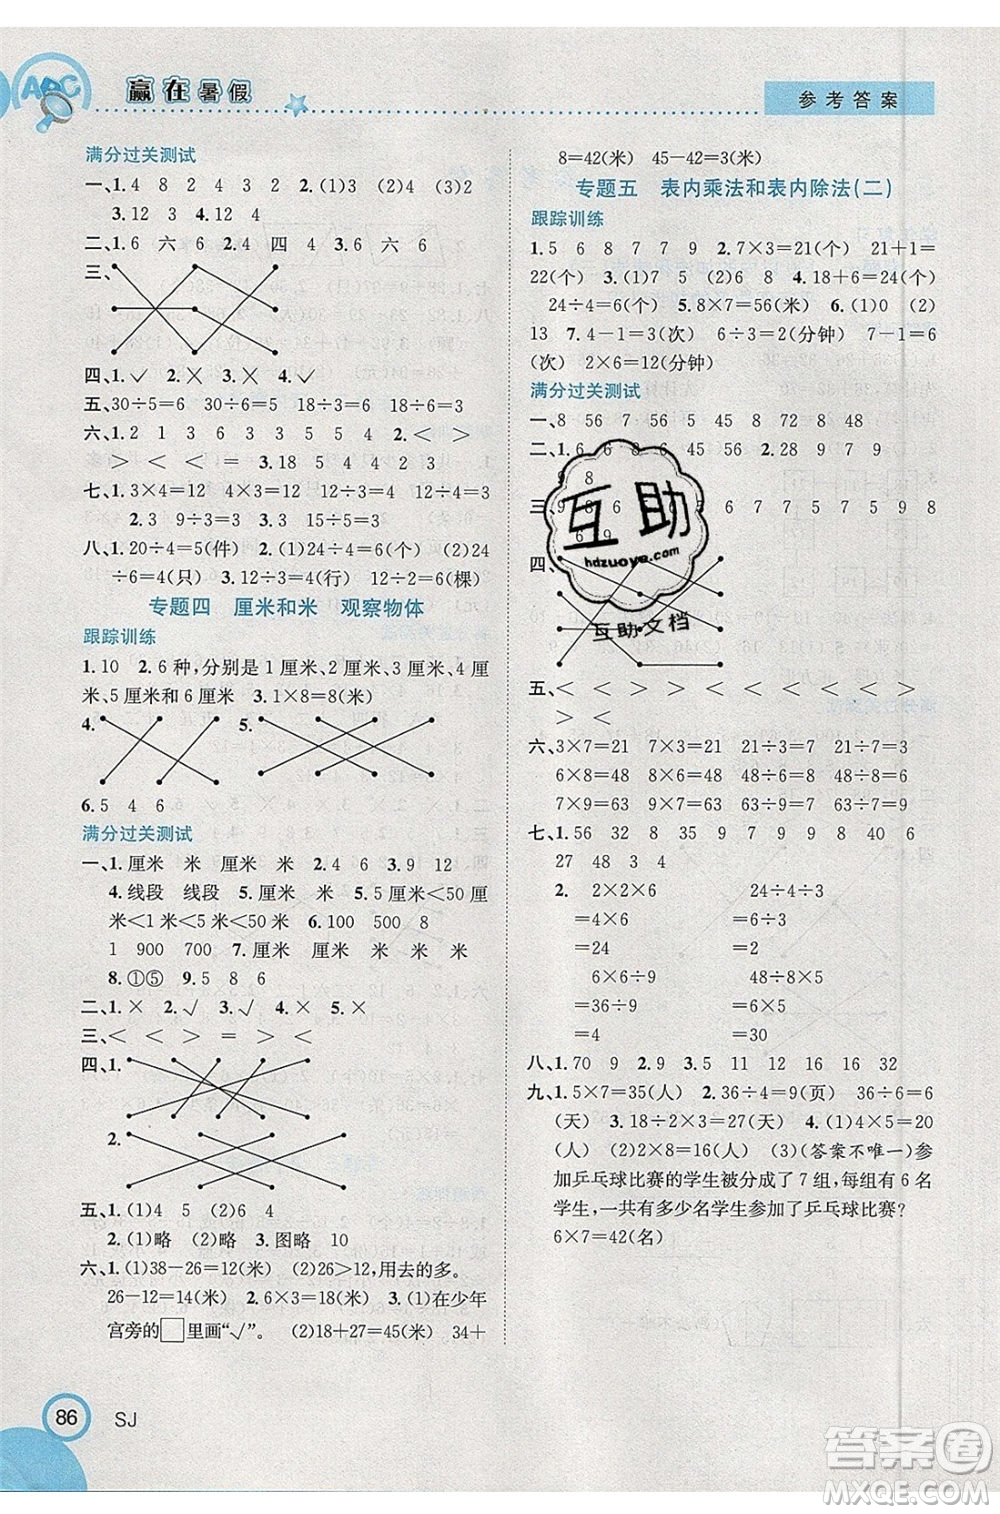 ABC 赢在暑假
参考答案
满分过关测试
一、1.4 8 2 4 3 2 2.2 3
3.12 4 4.12 4
二、1.6 六 六 2.4 四 4 3.6 六 6
三、
四、1.✓ 2.✕ 3.✕ 4.✓
五、30÷5=6 6÷2=3 18÷6=3
六、1.2 1 3 6 3 5 5 4 2.< >
> < < < 3.18 5 4 4 4 3
七、1.3×4=12 12÷3=4 12÷4=3
2.3 9÷3=3 3.3 15÷5=3
八、1.20÷4=5(件) 2.(1)24÷4=6(个) (2)24
÷6=4(只) 3.12÷3=4(行) 12÷2=6(棵)
专题四 厘米和米 观察物体
跟踪训练
1.10 2.6 种，分别是 1 厘米、2 厘米、3 厘米、4 厘
米、5 厘米和 6 厘米 3.1×8=8(米)
4. 5.
6.5 4 6
满分过关测试
一、1.厘米 米 厘米 米 2.4 6 3.9 12
4.线段 线段 5.6 厘米<9 厘米<50 厘
米<1 米<5 米<50 米 6.100 500 8
1 900 700 7.厘米 厘米 米 米 米
8.①⑤ 9.5 8 6
二、1.✕ 2.✓ 3.✓ 4.✕
三、< < > = > <
四、1.
2.
五、1.(1)4 5 (2)6
2.(1)略 (2)略 3.图略 10
六、1.(1)38-26=12(米) (2)26>12,用去的多。
26-12=14(米) 2.6×3=18(米) 3.(1)在少年
宫旁的□里画“✓”。 (2)18+27=45(米) 34+
8=42(米) 45-42=3(米)
专题五 表内乘法和表内除法(二)
跟踪训练
1.5 6 8 7 7 9 2.7×3=21(个) 21+1=
22(个) 3.(1)7 (2)6 (3)8 4.18÷3=6(个)
24÷4=6(个) 5.8×7=56(米) 6.(1)0 (2)
13 7.4-1=3(次) 6÷3=2(分钟) 7-1=6
(次) 2×6=12(分钟)
满分过关测试
一、8 56 7 56 5 45 8 72 8 48
二、1.6 6 8 6 9 6 2.28 9 7 9
9 8
三、9 8 9 8 7 7 5 7 5 9 8
四、
五、< < < > < < < < >
> < <
六、3×7=21 7×3=21 21÷3=7 21÷7=3
6×8=48 8×6=48 48÷6=8 48÷8=6
7×9=63 9×7=63 63÷7=9 63÷9=7
七、1.56 32 8 4 9 7 9 9 8 40 6
27 48 3 4
2. 2×2×6 24÷4÷3
=4×6 =6÷3
=24 =2
6×6÷9 48÷8×5
=36÷9 =6×5
=4 =30
八、1.70 9 2.9 3.5 11 12 16 16 32
九、1.5×7=35(人) 2.36÷4=9(页) 36÷6=6
(天) 3.18÷2×3=27(天) 4.(1)4×5=20
(人) (2)2×8=16(人) (3)(答案不唯一)参
加乒乓球比赛的学生被分成了 7 组，每组有 6 名
学生，一共有多少名学生参加乒乓球比赛？
6×7=42(名)
互助
hdzuoye.com
互助文档
86 SJ
答案圈
MXQE.COM